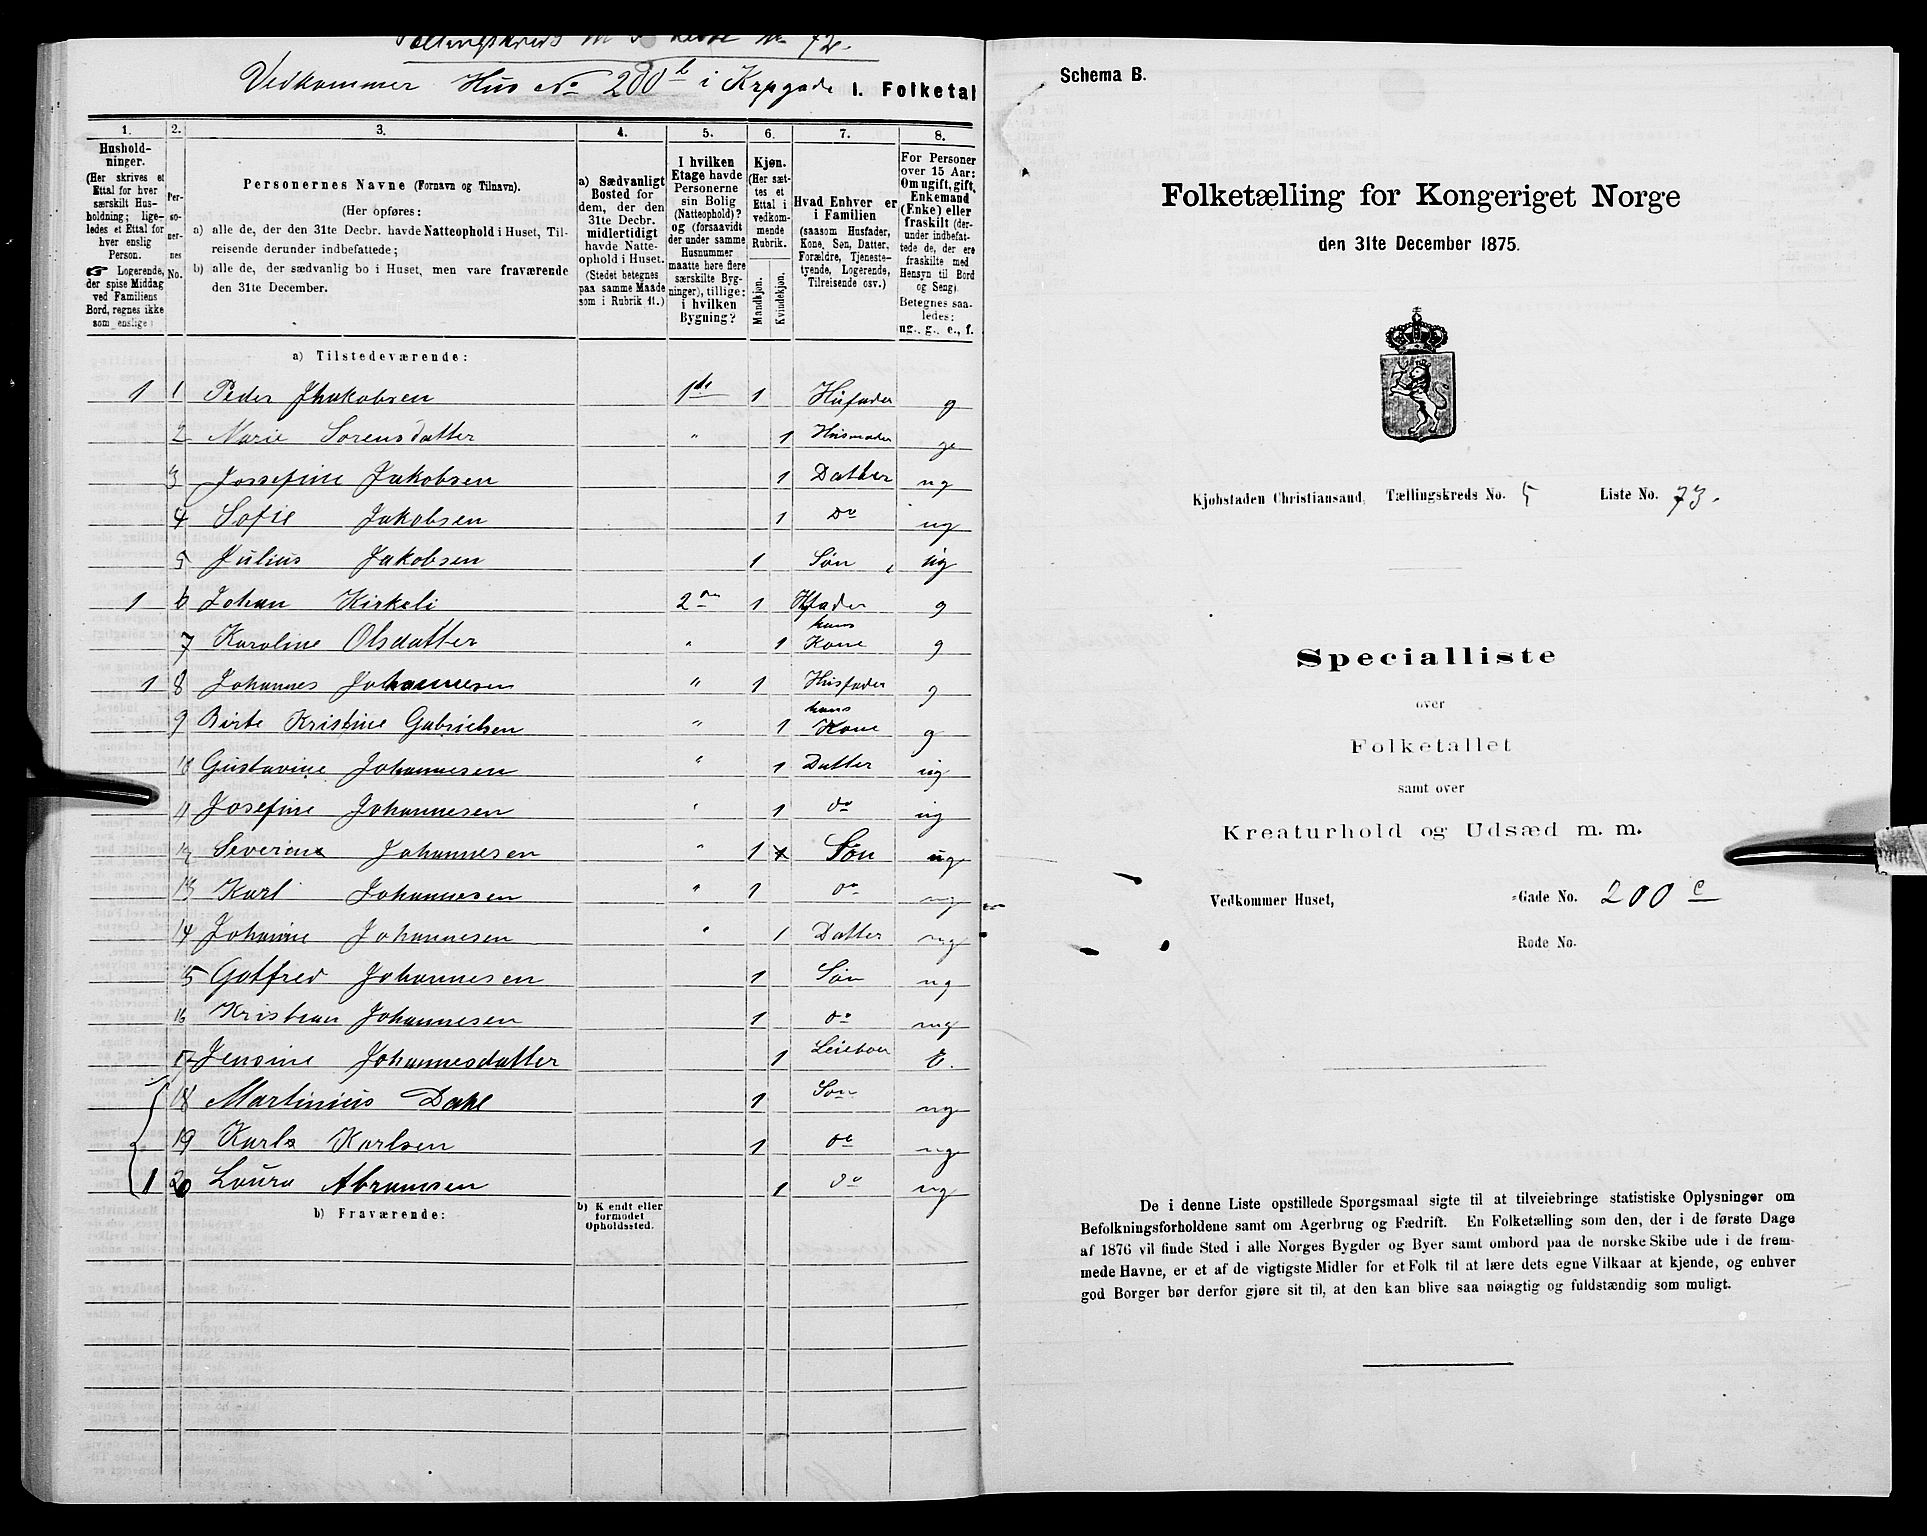 Tællingskreds No 5 Liste No 72.
Vedkommer Hus No 200 b i Krpgade I. Folketal
1. 2. 3. 4. 5. 6. 7. 8.
Hushold-
ninger.
(Her skrives et
Ettal for hver
særskilt Hus-
holdning; lige-
ledes et Ettal for
hver enslig
Person.
☞ Logerende,
der spise Middag
ved Familiens
Bord, regnes ikke
som enslige)
Per-
so-
ner-
nes
No.
Personernes Navne (Fornavn og Tilnavn).
(Her opføres:
a) alle de, der den 31te Decbr. havde Natteophold i Huset, Til-
reisende derunder indbefattede;
b) alle de, der sædvanlig bo i Huset, men vare fraværende
den 31te December.
a) Sædvanligt
Bosted for
dem, der den
31te Decbr.
midlertidigt
havde Natte-
ophold i Huset.
(Stedet betegnes
paa samme Maade
som i Rubrik 11.)
I hvilken
Etage havde
Personerne
sin Bolig
(Natteophold)?
og (forsaavidt
der under samme
Husnummer
maatte høre flere
særskilte Byg-
ninger), tillige:
i hvilken
Bygning?
Kjøn.
(Her sæt-
tes et
Ettal i
vedkom-
mende
Rubrik.
Mandkjøn.
Kvindekjøn.
Hvad Enhver er
i Familien
(saasom Husfader,
Kone, Søn, Datter,
Forældre, Tjeneste-
tyende, Logerende,
Tilreisende osv.)
For Personer
over 15 Aar:
Om ugift, gift,
Enkemand
(Enke) eller
fraskilt (der-
under indbefat-
tede de, der ere
fraskilte med
Hensyn til Bord
og Seng).
Betegnes saa-
ledes:
ug., g., e., f.
a) Tilstedeværende:
1 1 Peder Jhakobsen 1de 1 Husfader g
2 Marie Sorensdatter " 1 Husmoder g
3 Jossefine Jakobsen 1 Datter ug
4 Sofie Jakobsen 1 Do ug
5 Julius Jakobsen 1 Søn ug
1 6 Johan Kirkeli 2den 1 Hfader g
7 Karoline Olsdatter " 1 hans Kone g
1 8 Johannes Johannesen " 1 Husfader g
9 Birte Kristine Gabrielsen " 1 hans Kone g
10 Gustavine Johannesen " 1 Datter ug
11 Josefine Johannesen " 1 do ug
12 Severin Johannesen " 1 Søn ug
13 Karl Johannesen " 1 do ug
14 Johanne Johannesen " 1 Datter ug
15 Gotfred Johannesen 1 Søn ug
16 Kristian Johannesen 1 do ug
17 Jensine Johannesdatter 1 Leieboer E.
18 Martinius Dahl 1 Søn ug
19 Karl Karlsen 1 do ug
1 20 Laura Abramsen 1 do ug
b) Fraværende:
b) Kjendt eller
formodet
Opholdssted.
Schema B.
Folketælling for Kongeriget Norge
den 31te December 1875.
Kjøbstaden Christiansand, Tællingskreds No. 5 Liste No. 73.
Specialliste
over
Folketallet
samt over
Kreaturhold og Udsæd m. m.
Vedkommer Huset, -Gade No. 200 c
Rode No.
De i denne Liste opstillede Spørgsmaal sigte til at tilveiebringe statistiske Oplysninger om
Befolkningsforholdene samt om Agerbrug og Fædrift. En Folketælling som den, der i de første Dage
af 1876 vil finde Sted i alle Norges Bygder og Byer samt ombord paa de norske Skibe ude i de frem-
mede Havne, er et af de vigtigste Midler for et Folk til at lære dets egne Vilkaar at kjende, og enhver
god Borger bør derfor gjøre sit til, at den kan blive saa nøiagtig og fuldstændig som muligt.